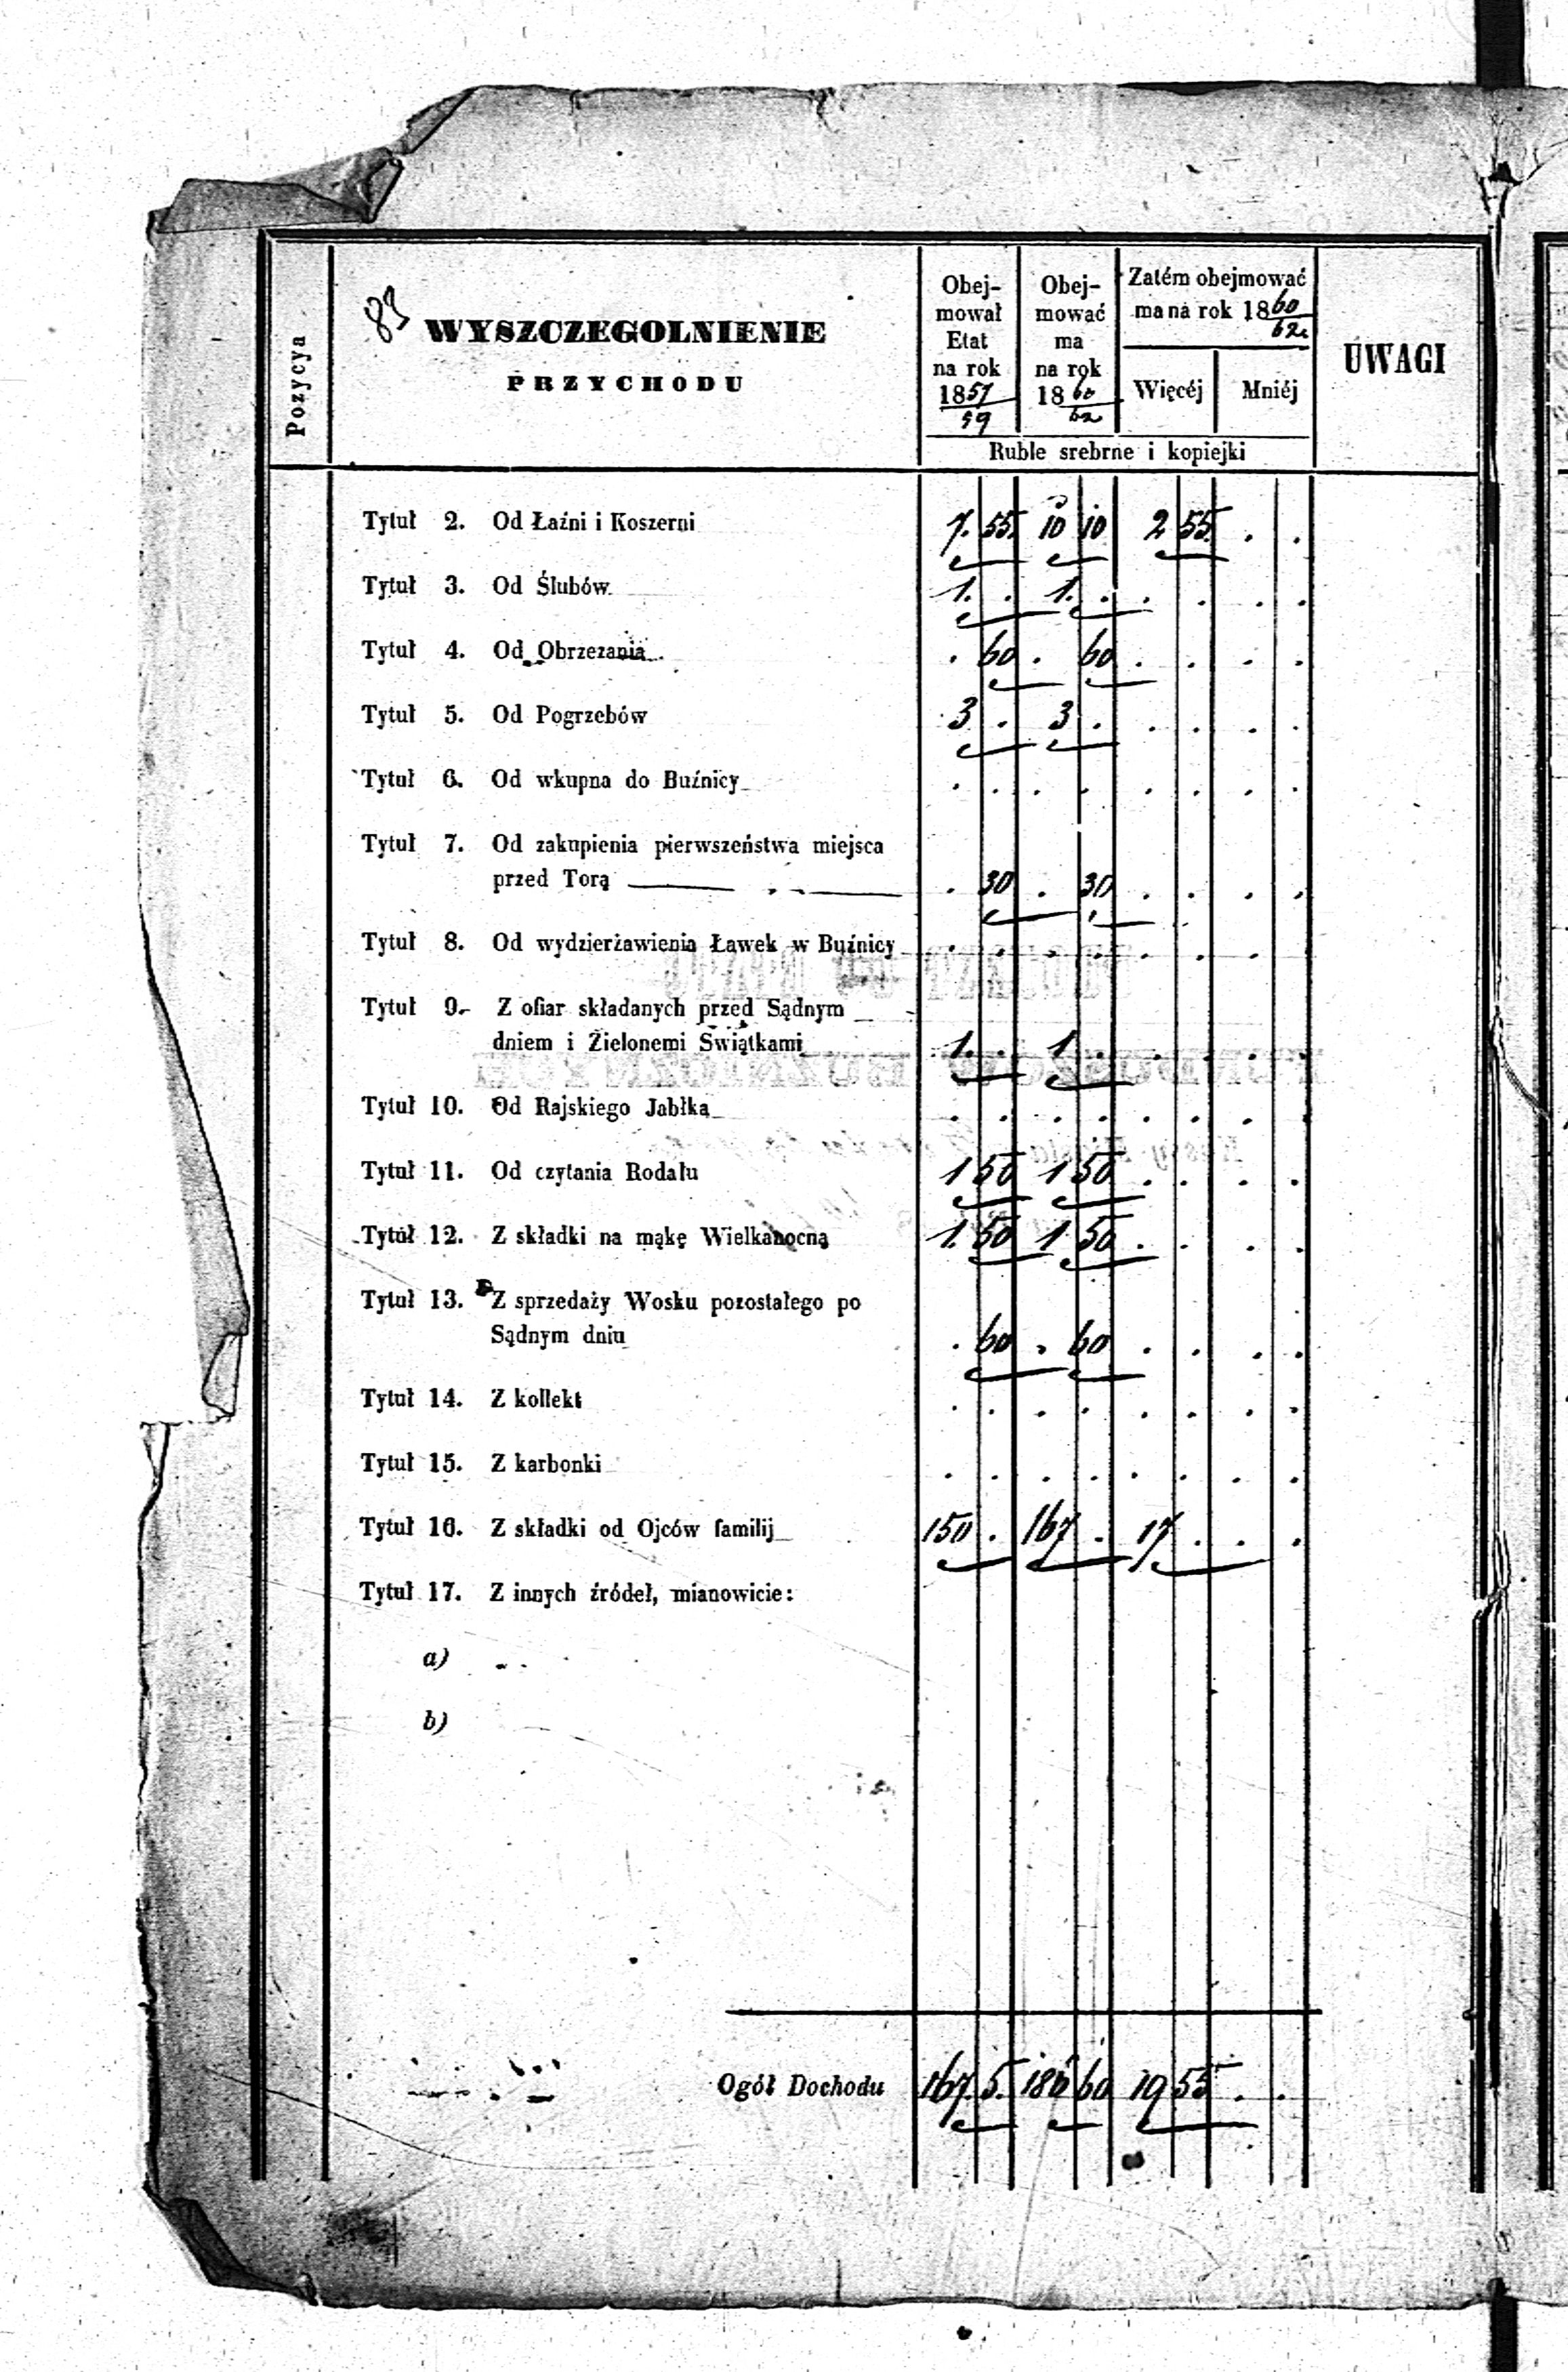 83
Pozycya
WYSZCZEGOLNIENIE
PRZYCHODU
Obej-
mował
Etat
na rok
1857
59
Obej-
mować
ma
na rok
1860
62
Zatém obejmować
ma na rok 1860
62
Więcéj
Mniéj
Ruble srebrne i kopiejki
UWAGI
Tytuł 2. Od Łaźni i Koszerni 7. 55. 10 10 2 55. . .
Tytuł 3. Od Ślubów 1. . 1. . . . . .
Tytuł 4. Od Obrzezania . 60 . 60 . . . .
Tytuł 5. Od Pogrzebów 3 . 3 . . . . .
Tytuł 6. Od wkupna do Buźnicy . . . . . . . .
Tytuł 7. Od zakupienia pierwszeństwa miejsca
przed Torą . 30 . 30 . . . .
Tytuł 8. Od wydzierżawienia Ławek w Buźnicy . . . . . . .
Tytuł 9. Z ofiar składanych przed Sądnym
dniem i Zielonemi Świątkami 1. . 1 . . . . .
Tytuł 10. Od Rajskiego Jabłka . . . . . . . .
Tytuł 11. Od czytania Rodału 1 50 1 50 . . . .
Tytuł 12. Z składki na mąkę Wielkanocną 1. 50 1 50 . . . .
Tytuł 13. Z sprzedaży Wosku pozostałego po
Sądnym dniu . 60 . 60 . . . .
Tytuł 14. Z kollekt . . . . . . . .
Tytuł 15. Z karbonki . . . . . . . .
Tytuł 16. Z składki od Ojców familij 150 . 167 . 17 . . .
Tytuł 17. Z innych źródeł, mianowicie:
a)
b)
Ogół Dochodu 167. 5. 186 60 19 55 . .